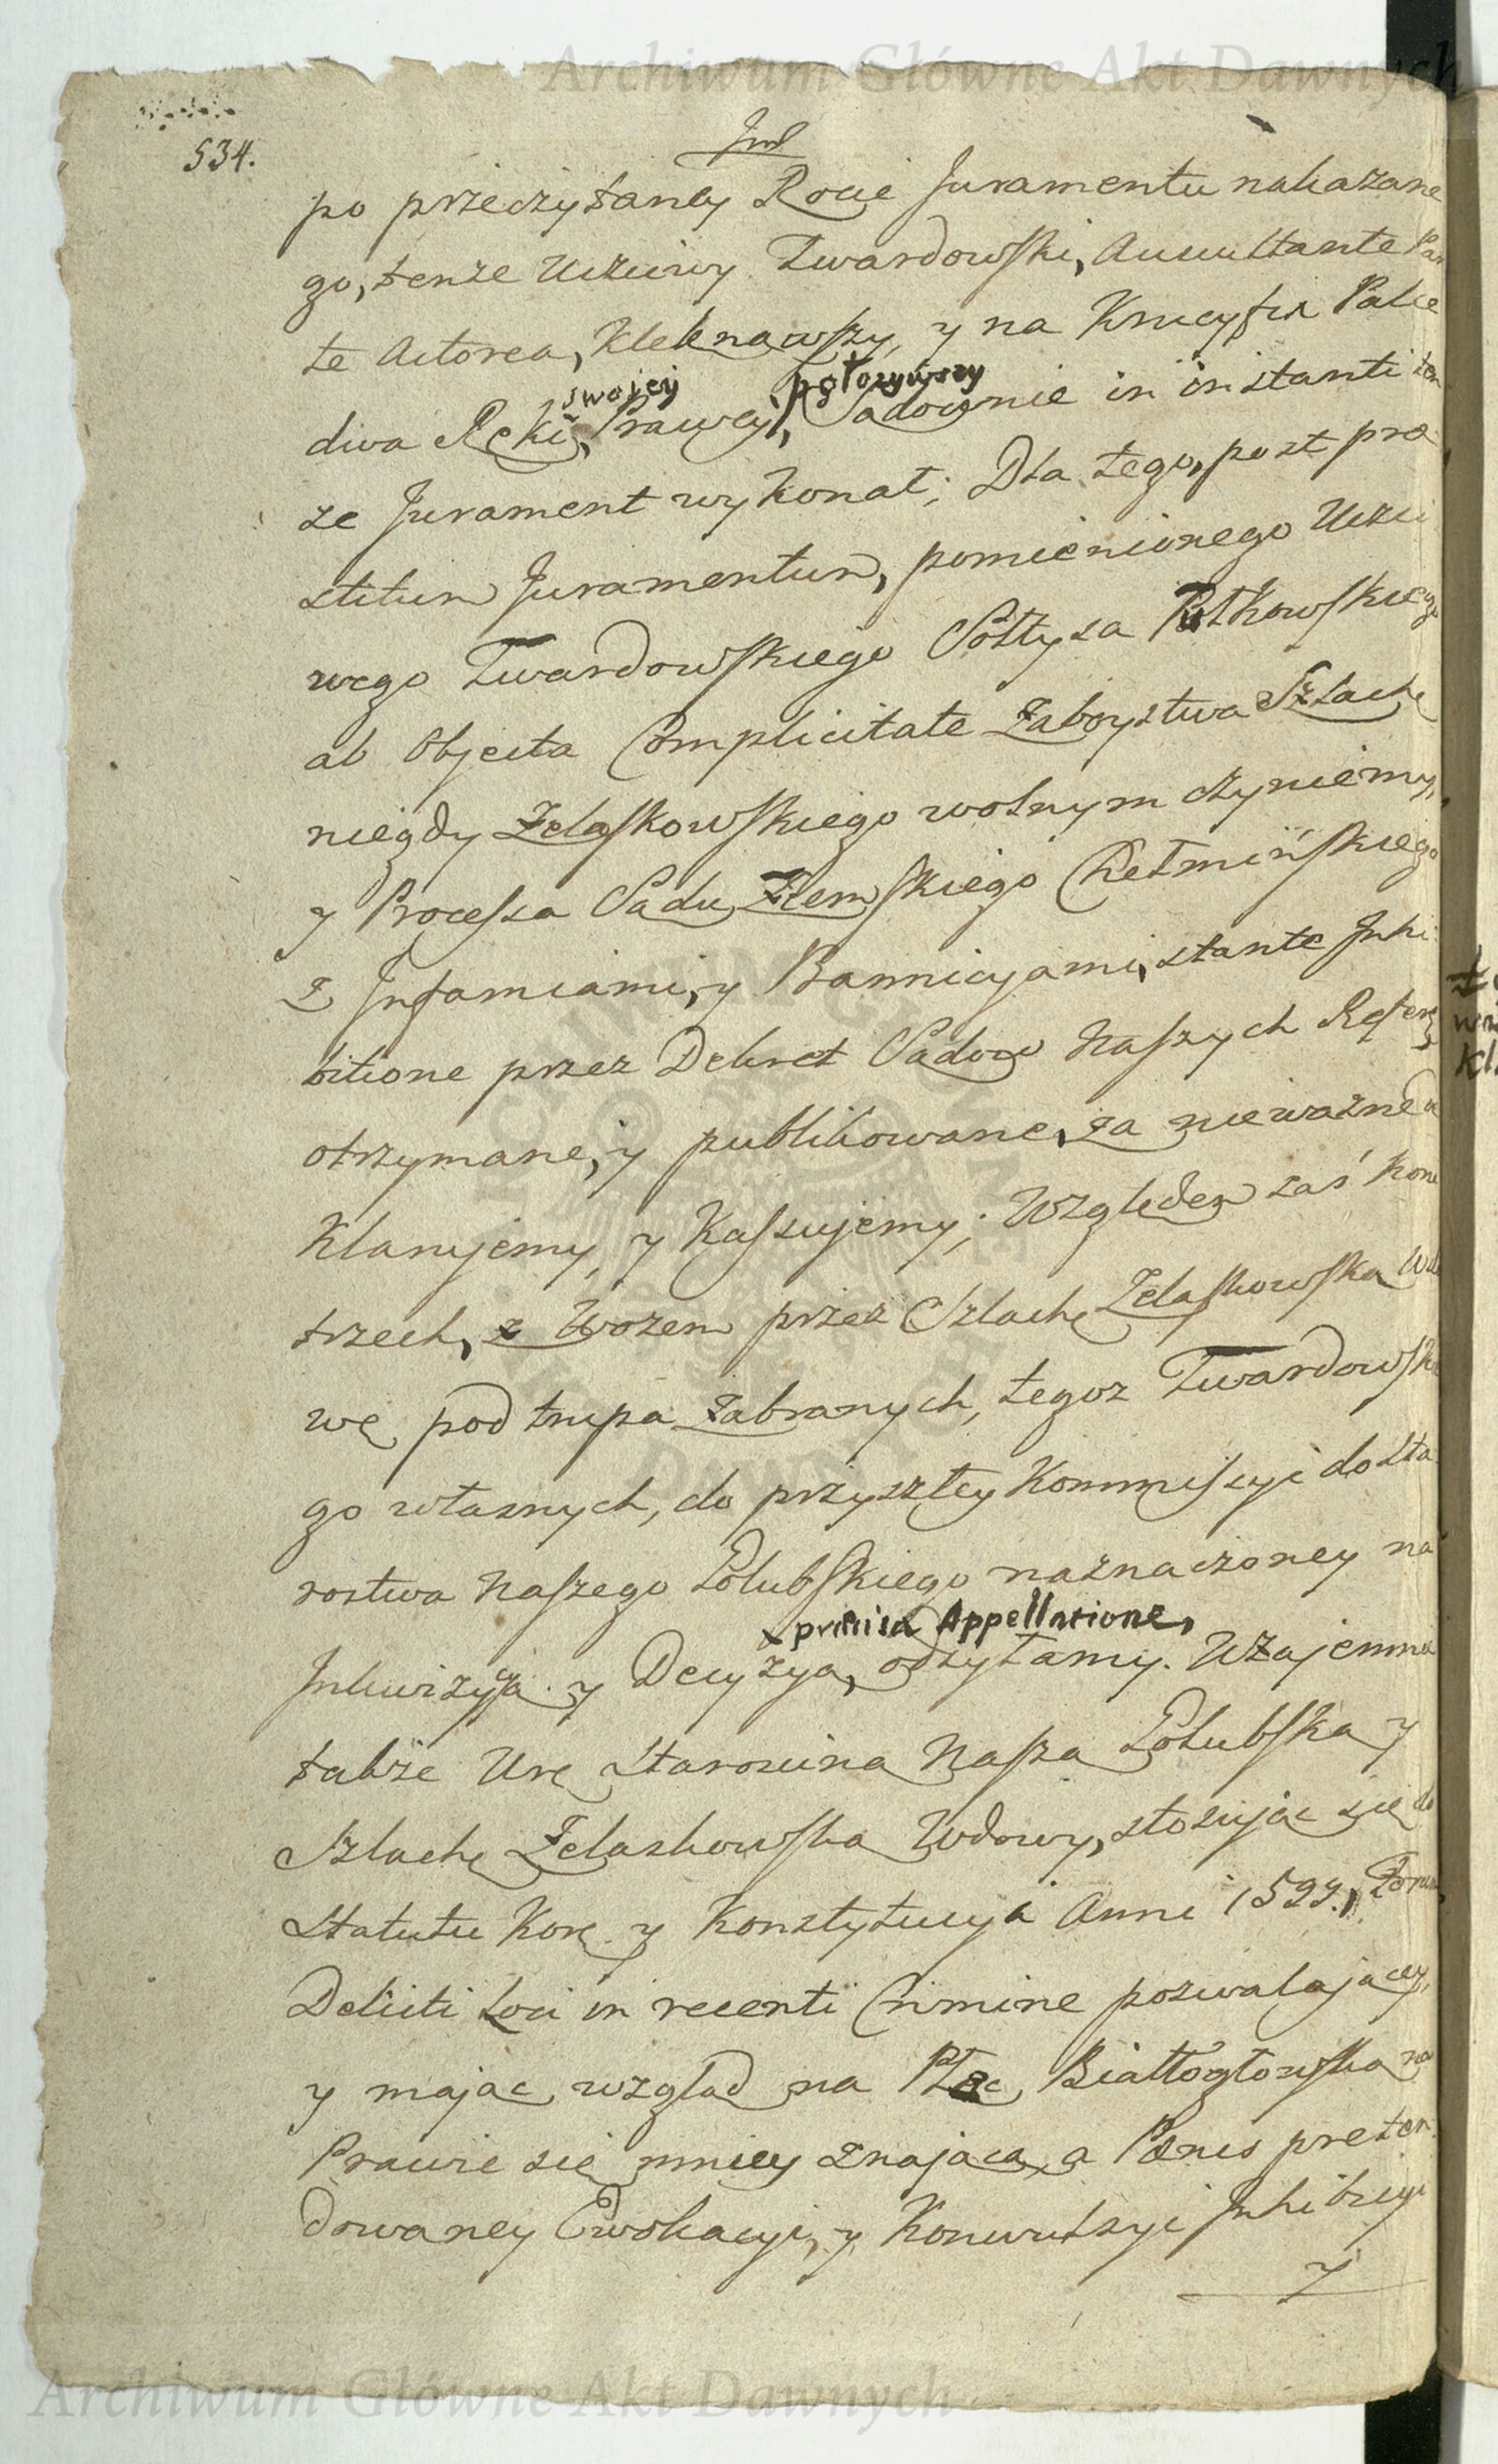 Archiwum Główne Akt Dawnych
534.
po przeczytaney Rocie Juramentu nakazane
go, tenże Uczciwy Twardowski, Auscultante Par
te Actorea, Klęknąwszy, y na Krucyfix Palce
swojey położywszy
dwa Ręki Prawey, Sądownie in instanti ten
że Jurament wykonał; Dla tego, post præ
stitum Juramentum, pomienionego Uczci
wego Twardowskiego Sołtysa Pułkowskiego
ab Objecta Complicitate Zaboystwa Szlache
niegdy Zelaskowskiego wolnym czyniemy,
y Processa Sądu Ziemskiego Chełmińskiego
z Infamiami, y Bannicyami, stante Inhi
bitione przez Dekret Sądow Naszych Refer
otrzymane, y publikowane, za nieważne de
klarujemy, y Kassujemy; Względem zaś Koni
trzech, z Wozem przez Szlache Zelaskowską Wdo
wę pod trupa zabranych, tegoż Twardowskie
go własnych, do przyszłey Kommissyi do Sta
rostwa Naszego Golubskiego naznaczoney na
præcisa Appellatione,
Inkwizycyą y Decyzyą, odsyłamy. Wzajemnie
także Urę Starościna Naszą Golubską y
Szlache Zelaskowską Wdowy, stosując się do
Statutu Kore y Konstytucyi Anni 1593. Forum
Delicti Loci in recenti Crimine pozwalającey,
y mając wzgląd na Płeć Białłogłowską na
Prawie się mniey znającą, a Pœnis preten
dowaney Ewokacyi, y Konwulsyi Inhibicyi
y
Archiwum Główne Akt Dawnych